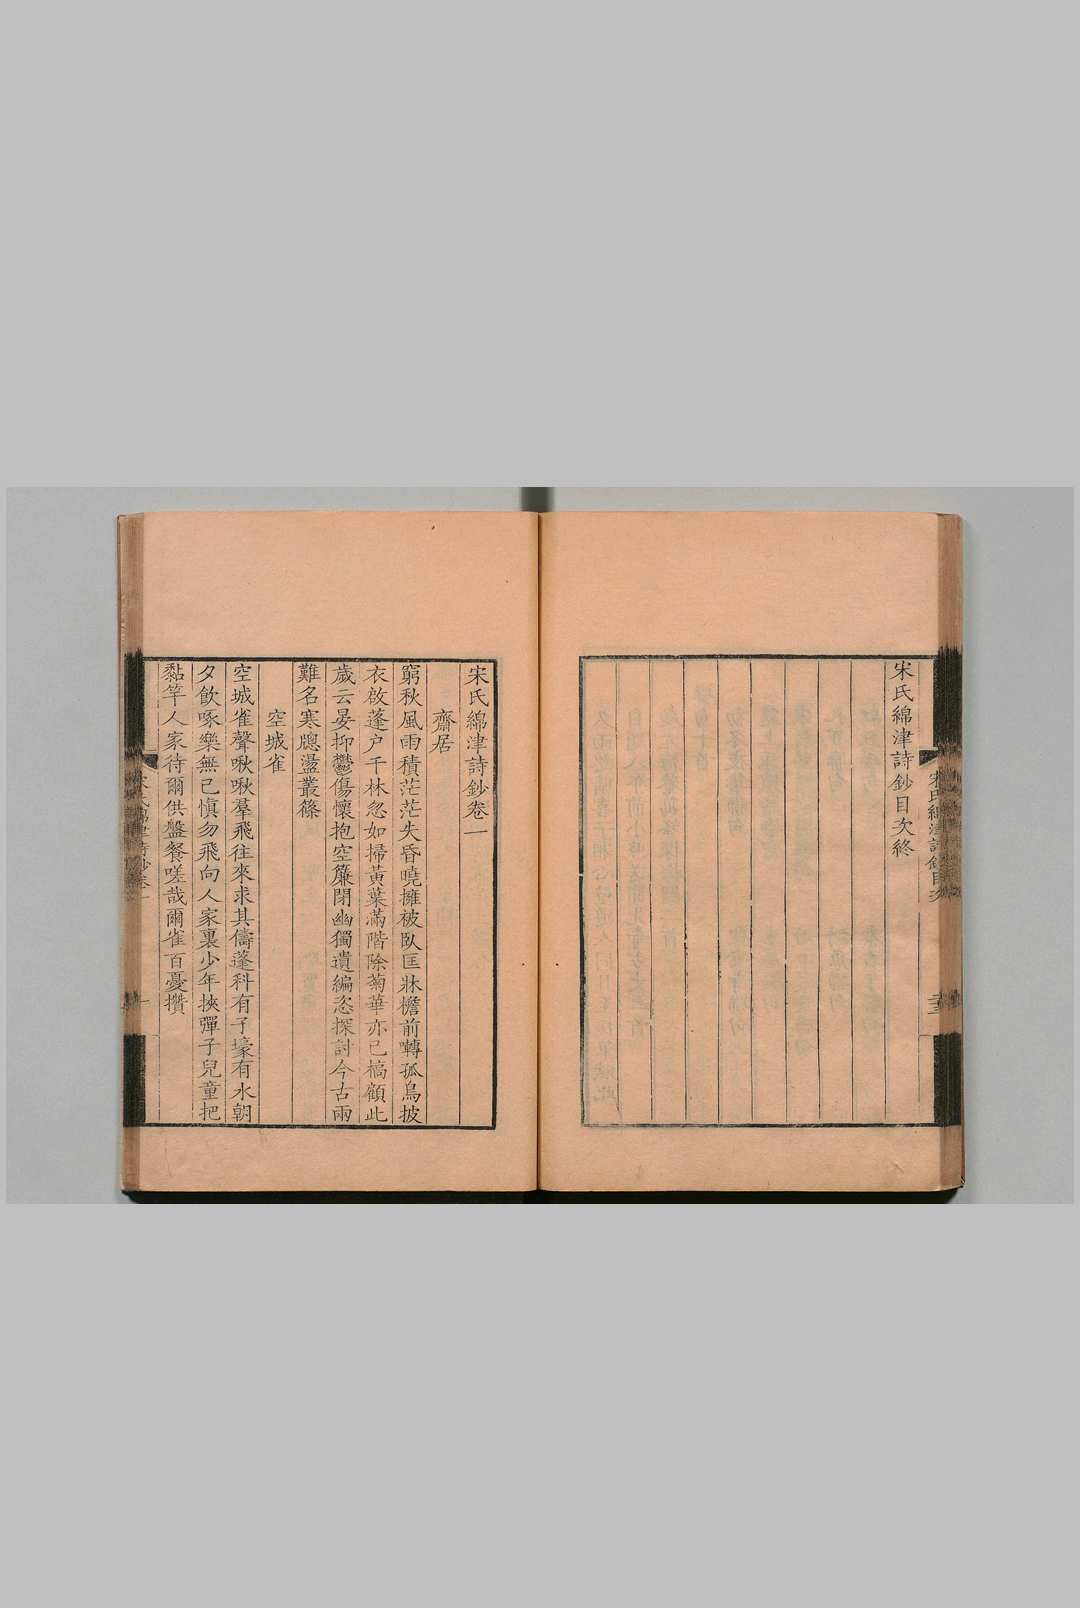 宋氏綿津詩鈔目次終
宋氏綿津詩鈔目次
宋氏綿津詩鈔卷一
齋居
窮秋風雨積茫茫失昏曉擁被臥匡牀檐前囀孤鳥披
衣啟蓬户千林忽如掃黃葉滿階除菊華亦已槁顧此
歲云晏抑鬱傷懷抱空簾閉幽獨遺編恣探討今古兩
難名寒牕盪叢篠
空城雀
空城雀聲啾啾羣飛往來求其儔蓬科有子壕有水朝
夕飲啄樂無已慎勿飛向人家裏少年挾彈子兒童把
黏竿人家待爾供盤餐嗟哉爾雀百憂攢
宋氏綿津詩鈔卷一
一